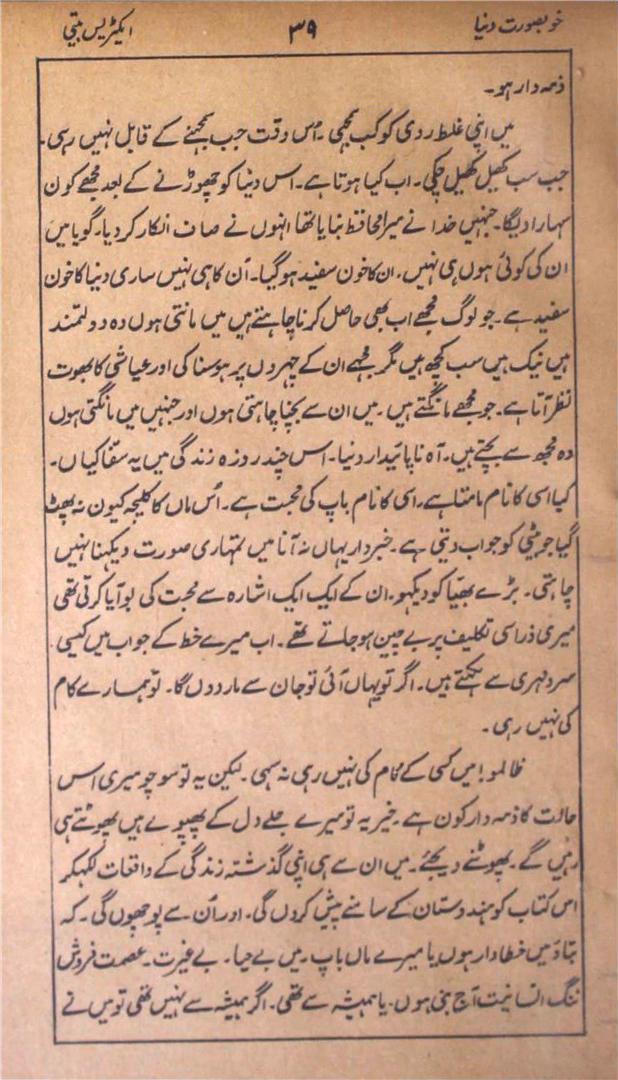 خوبصورت دنیا ۳۹ ایکٹریس بیتی
ذمہ دار ہو۔
میں اپنی غلط ردی کو کب سمجھی۔ اس وقت جب سمجھنے کے قابل نہیں رہی۔
جب سب کھیل کھیل چکی۔ اب کیا ہوتا ہے۔ اس دنیا کو چھوڑنے کے بعد مجھے کون
سہارا دیگا۔ جنہیں خدا نے میرا محافظ بنایا تھا انہوں نے صاف انکار کر دیا۔ گویا میں
ان کی کوئی ہوں ہی نہیں، ان کا خون سفید ہو گیا۔ اُن کا ہی نہیں ساری دنیا کا خون
سفید ہے۔ جو لوگ مجھے اب بھی حاصل کرنا چاہتے ہیں میں مانتی ہوں وہ دولتمند
ہیں نیک ہیں سب کچھ ہیں مگر مجھے ان کے چہروں پر ہوسناکی اور عیاشی کا بھوت
نظر آتا ہے۔ جو مجھے مانگتے ہیں۔ میں ان سے بچنا چاہتی ہوں اور جنہیں میں مانگتی ہوں
وہ مجھ سے بچتے ہیں۔ آہ ناپائیدار دنیا۔ اس چند روزہ زندگی میں یہ سفاکیاں۔
کیا اسی کا نام مامتا ہے۔ اسی کا نام باپ کی محبت ہے۔ اُس ماں کا کلیجہ کیون نہ پھٹ
گیا جو بیٹی کو جواب دیتی ہے۔ خبردار یہاں نہ آنا میں تمہاری صورت دیکہنا نہیں
چاہتی۔ بڑے بھیا کو دیکہو، ان کے ایک ایک اشارہ سے محبت کی بو آیا کرتی تھی
میری ذراسی تکلیف پر بے چین ہو جاتے تھے۔ اب میرے خط کے جواب میں کیسی
سرد مہری سے لکھتے ہیں۔ اگر تو یہاں آئی تو جان سے مار دوں گا۔ تو ہمارے کام
کی نہیں رہی۔
ظالمو! میں کسی کے کام کی نہیں رہی نہ سہی۔ لیکن یہ تو سوچو میری اس
حالت کا ذمہ دار کون ہے۔ خیر یہ تو میرے جلے دل کے پھپولے ہیں پھوٹتے ہی
رہیں گے۔ پھوٹنے دیجئے۔ میں ان سے ہی اپنی گذشتہ زندگی کے واقعات لکہکر
اس کتاب کو ہندوستان کے سامنے پیش کر دوں گی۔ اور اُن سے پوچھوں گی۔ کہ
بتاؤ میں خطا دار ہوں یا میرے ماں باپ۔ میں بے حیا۔ بے غیرت۔ عصمت فروش
ننگ انسانیت آج بنی ہوں۔ یا ہمیشہ سے تھی۔ اگر ہمیشہ سے نہیں تھی تو میں نے